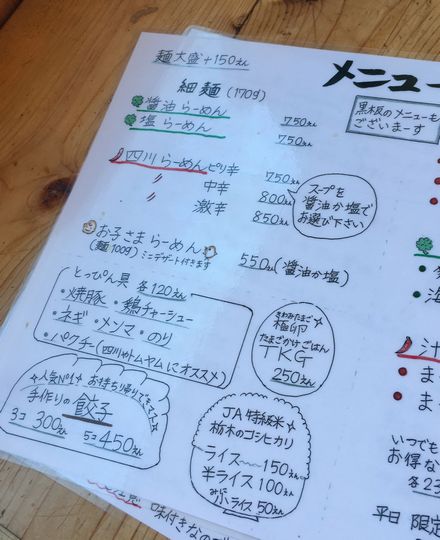 麺大盛+150えん
メニュー
細麺(170g)
醤油らーめん 750えん
塩らーめん 750えん
黒板のメニューも
ございまーす
四川らーめん ピリ辛 750えん
〃 中辛 800えん
〃 激辛 850えん
スープを
醤油か塩で
お選び下さい
お子さまらーめん 550えん(醤油か塩)
(麺100g)ミニデザート付きます
とっぴん具 各120えん
・焼豚・鶏チャーシュー
・ネギ・メンマ・のり
・パクチー(四川やトムヤムにオススメ)
きわみたまご
極卵
たまごかけごはん
TKG
250えん
人気No1 お持ち帰りできますよ
手作りの餃子
3コ300えん 5コ450えん
JA特級米
栃木のコシヒカリ
ライス〜150えん
半ライス100えん
小ライス50えん
汁
ま
ま
いつでも
お得な
各23
平日限定
味付きなので